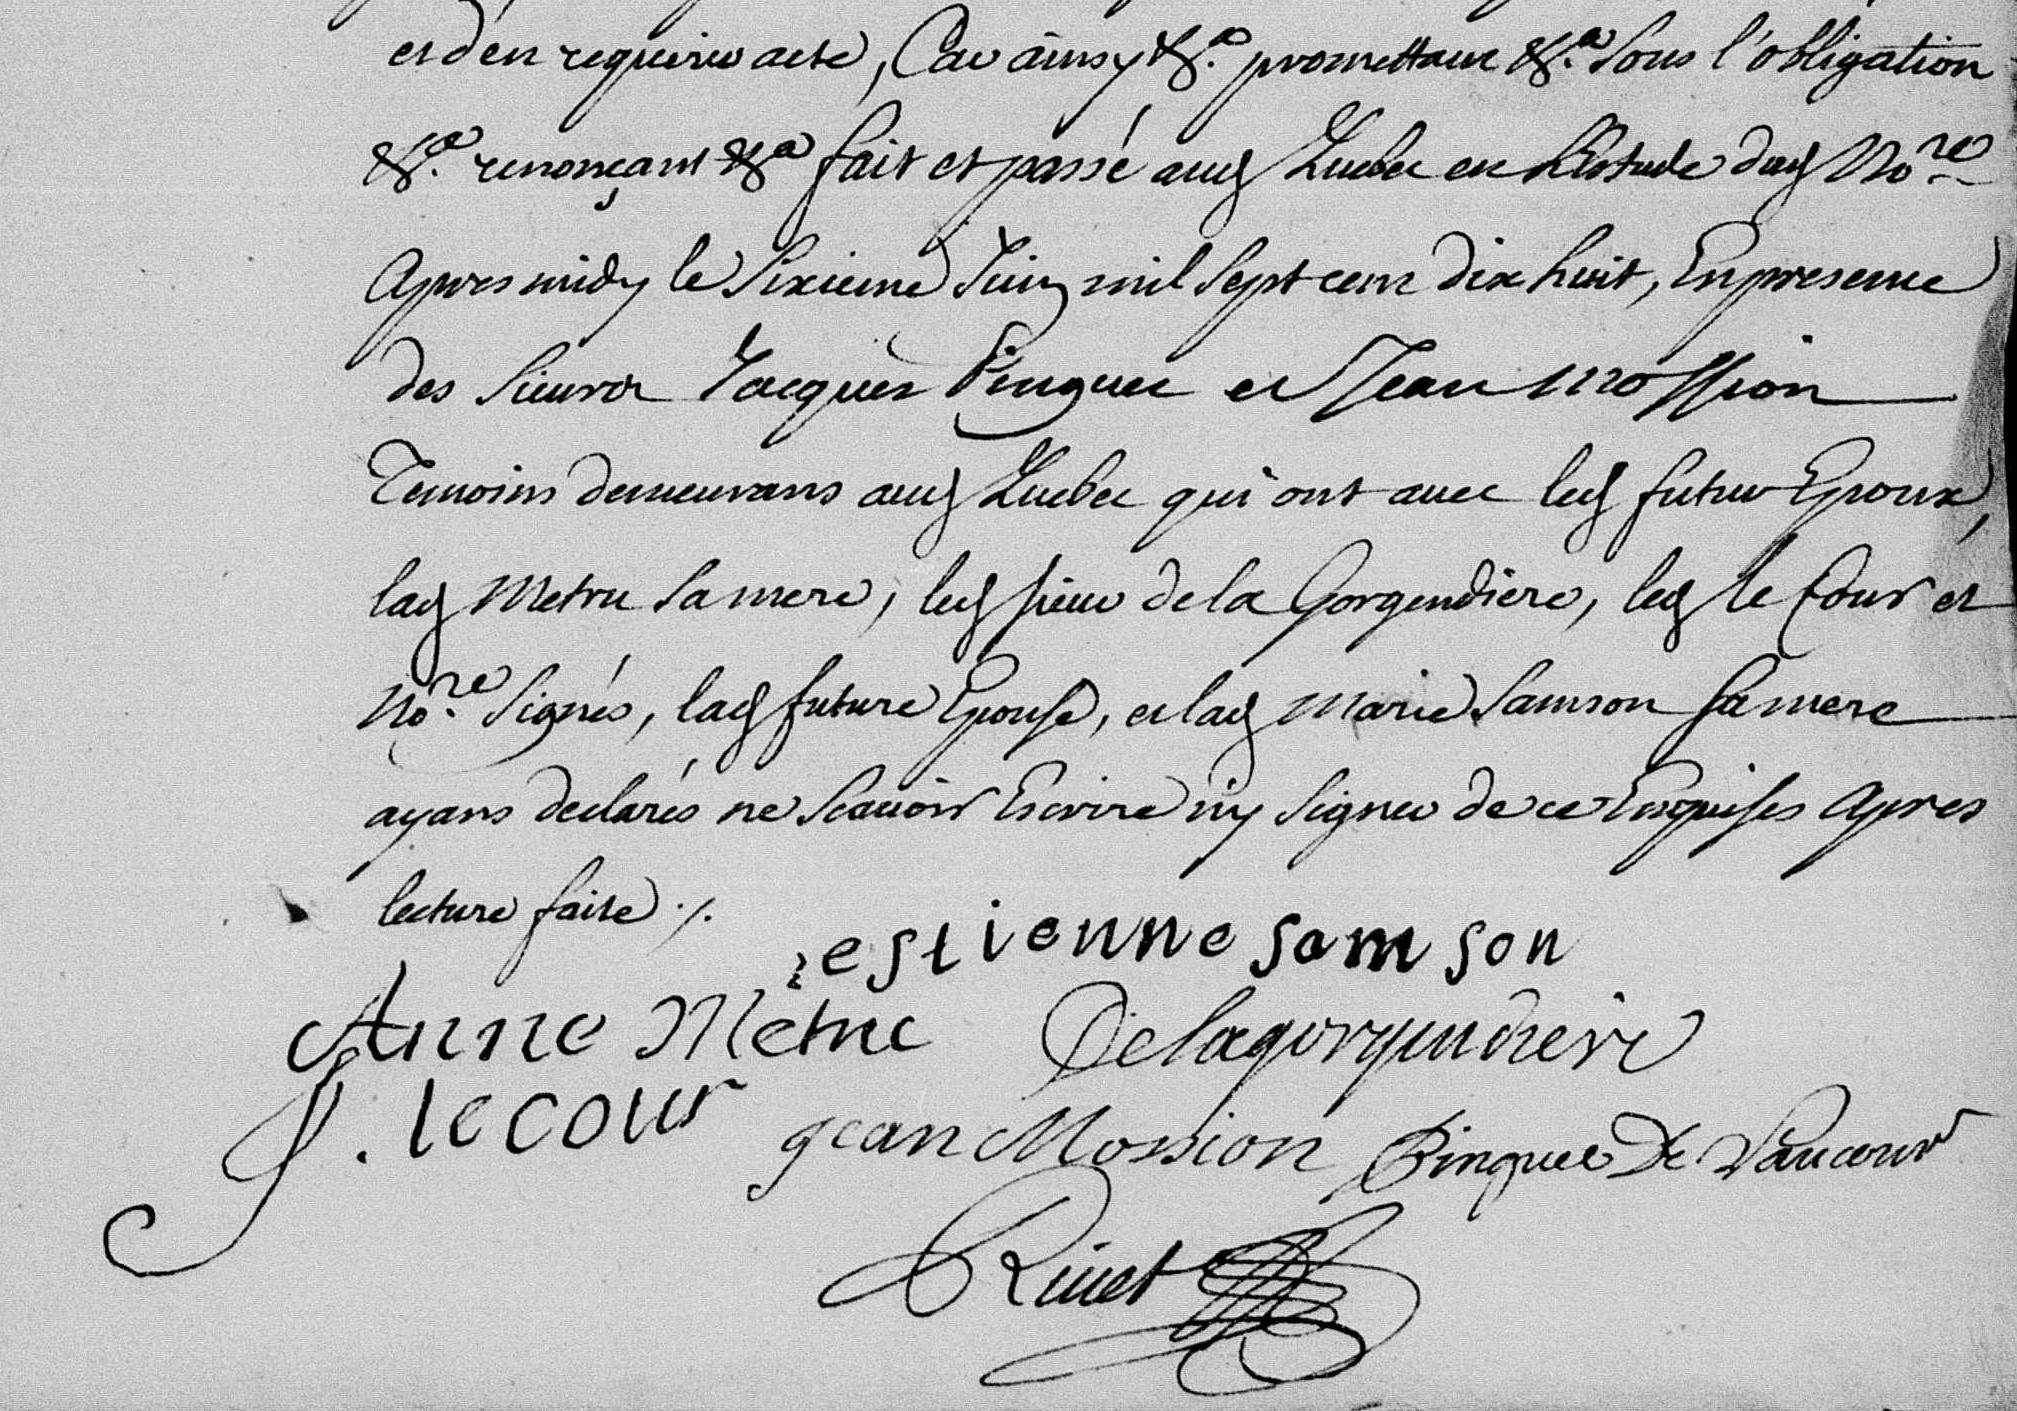 et d'en requerir acte, Car ainsy &c.a promettant &c.a sous l'obligation
&c.a renonçant &c.a fait et passé aud Quebec en l'Estude dud No.re
Apres midy le Sixieme Juin mil sept cent dix huit, En presence
des Sieurs Jacques Pinguet et Jean Mossion
Temoins demeurans aud Quebec qui ont avec led futur Epoux,
lad Metru sa mere, led sieur de la Gorgendiere, led le Cour et
No.re signés, lad future Epouse, et lad Marie Samson sa mere
ayans declarés ne Scavoir Escrire ny signer de ce Enquises Apres
lecture faite ./.
estienne samson
Anne Metru Delagorgendiere
J. lecour jean Mossion Pinguet De Vaucour
Rivet